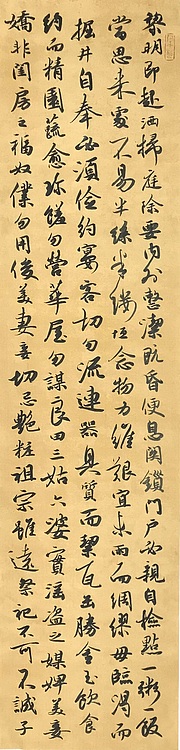 黎明即起洒掃庭除要内外整潔既昏便息関鎖門戶必親自檢點一粥一飯
當思来處不易半絲半縷恒念物力維艱宜未雨而綢繆毋臨渴而
掘井自奉必須儉約宴客切勿流連器具質而潔瓦缶勝金玉飲食
約而精園蔬愈珍饈勿營華屋勿謀良田三姑六婆實淫盗之媒婢美妾
嬌非閨房之福奴僕勿用俊美妻妾切忌艶粧祖宗雖遠祭祀不可不誠子